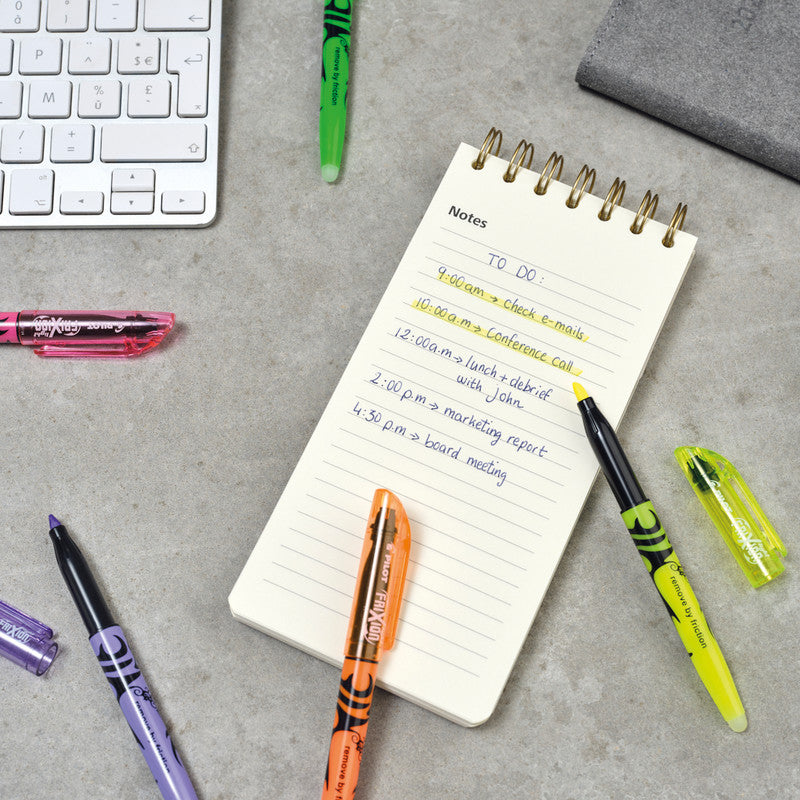 0
à
$
€
M
%
ù
£
/
:
+
=
remove by friction
Notes
TO DO:
9:00am → check e-mails
10:00a.m → Conference call
12:00a.m → lunch + debrief
with john
2:00 p.m → marketing report
4:30 p.m → board meeting
PILOT
FRIXION
PILOT
FRIXION
remove by
FRIXION
remove by friction
PILOT
FRIXION
remove by friction